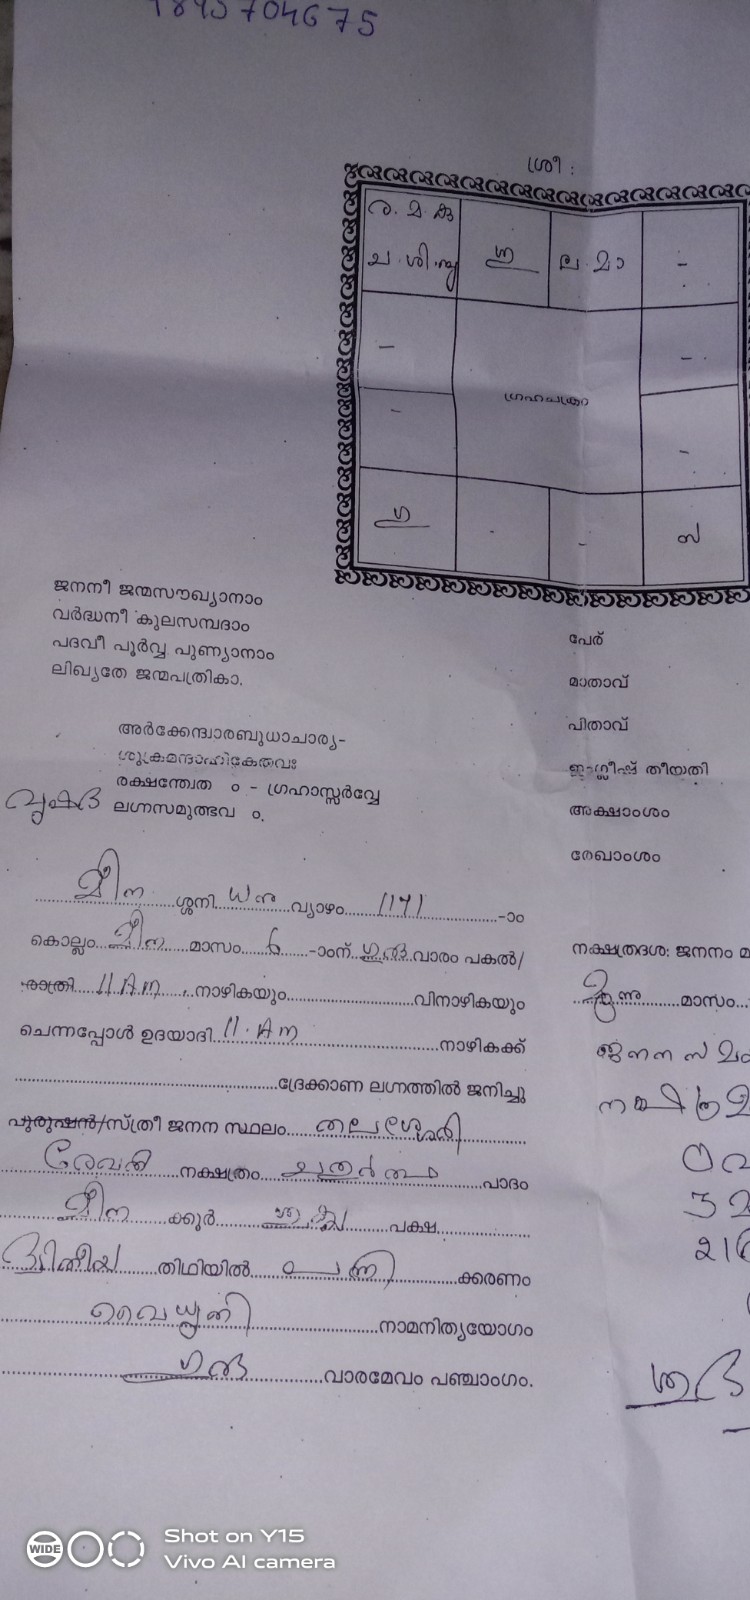 704675
ശ്രീ :
ര . മ . കു
ച . ശി . ബു
ശു
ല . മാ
-
-
-
ഗ്രഹചക്രം
-
-
ഗു
-
-
സ
ജനനീ ജന്മസൗഖ്യാനാം
വർദ്ധനീ കുലസമ്പദാം
പദവീ പൂർവ്വ പുണ്യാനാം
ലിഖ്യതേ ജന്മപത്രികാ.
അർക്കേന്ദ്വാരബുധാചാര്യ-
ശുക്രമന്ദാഹികേതവഃ
രക്ഷന്ത്വേത ം - ഗ്രഹാസ്സർവ്വേ
ലഗ്നസമുത്ഭവ ം.
പേര്
മാതാവ്
പിതാവ്
ഇംഗ്ലീഷ് തീയതി
അക്ഷാംശം
രേഖാംശം
മീന ശ്ശനി ധനു വ്യാഴം 1171 -ാം
കൊല്ലം മീന മാസം 6 -ാംന് ഗുരു വാരം പകൽ/
രാത്രി 11 AM നാഴികയും വിനാഴികയും
ചെന്നപ്പോൾ ഉദയാദി 11 . AM നാഴികക്ക്
ദ്രേക്കാണ ലഗ്നത്തിൽ ജനിച്ചു
പുരുഷൻ/സ്ത്രീ ജനന സ്ഥലം തലശ്ശേരി
രേവതി നക്ഷത്രം ചതുർത്ഥ പാദം
മീന ക്കൂർ ശുക്ല പക്ഷ
ദ്വിതീയ തിഥിയിൽ കരണം
വൈധൃതി നാമനിത്യയോഗം
ഗുരു വാരമേവം പഞ്ചാംഗം.
നക്ഷത്രദശ: ജനനം
മൂന്നു മാസം
ജനന
Shot on Y15
Vivo AI camera
WIDE